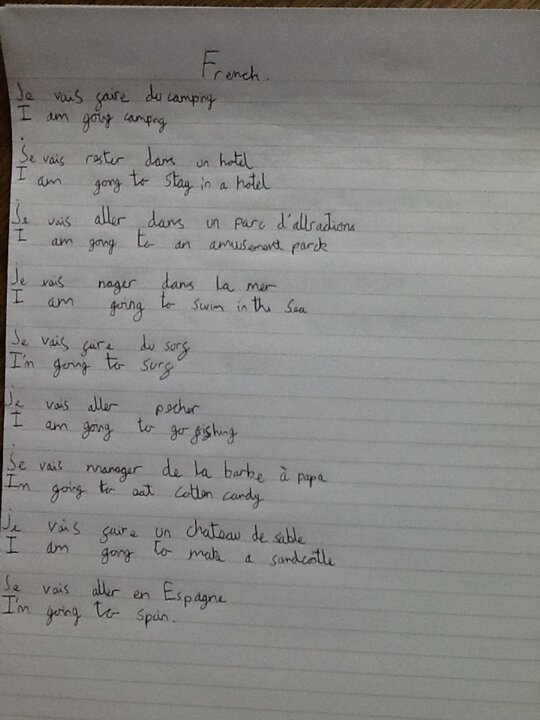 French.
Je vais faire du campng
I am going campng
Je vais rester dans un hotel
I am gong to stay in a hotel
Je vais aller dans un parc d'allradions
I am gong to an amusement parck
Je vais nager dans la mer
I am going to swim in the sea
Je vais faire du surf
I'm going to surf
Je vais aller pecher
I am gong to go fishing
Je vais manager de la barbe à papa
I'm going to eat cotton candy
Je vais faire un chateau de sable
I am going to make a sandcatle
Je vais aller en Espagne
I'm going to Spain.